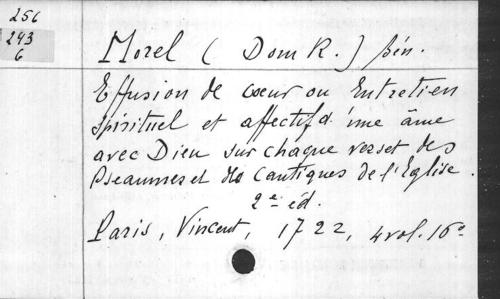 256
243
6
Morel (Dom R.) bén.
Effusion de cœur ou Entretien
spirituel et affectif d'une âme
avec Dieu sur chaque verset des
Pseaumes et des Cantiques de l'Eglise.
2e éd.
Paris, Vincent, 1722, 4 vol. 16°